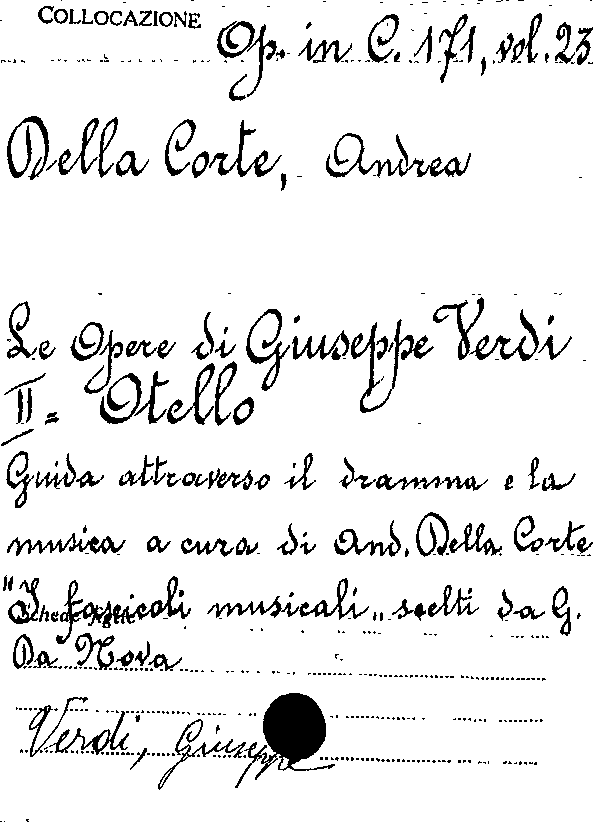 COLLOCAZIONE Op. in C. 171, vol. 23
Della Corte, Andrea
Le Opere di Giuseppe Verdi
II = Otello
Guida attraverso il dramma e la
musica a cura di And. Della Corte
"I fascicoli musicali„ scelti da G.
Schede
Da Nova
Verdi, Giuseppe